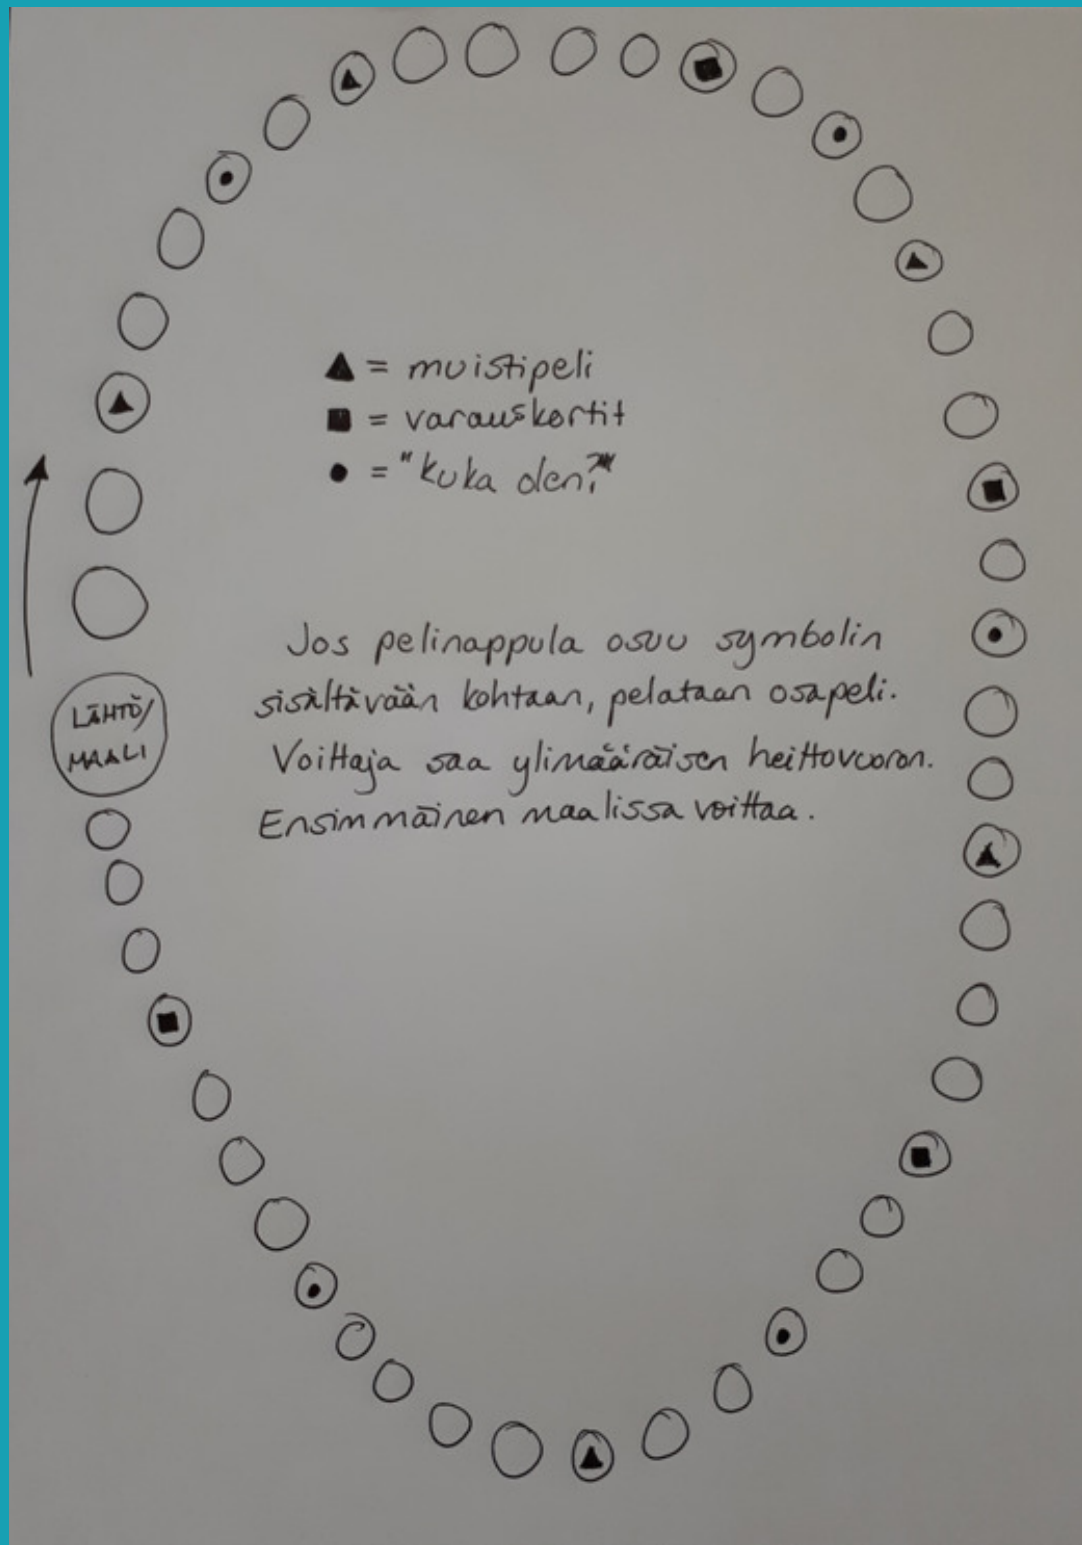 ▲ = muistipeli
■ = varauskortit
● = "kuka olen?"
LÄHTÖ/
MAALI
Jos pelinappula osuu symbolin
sisältävään kohtaan, pelataan osapeli.
Voittaja saa ylimääräisen heittovuoron.
Ensimmäinen maalissa voittaa.